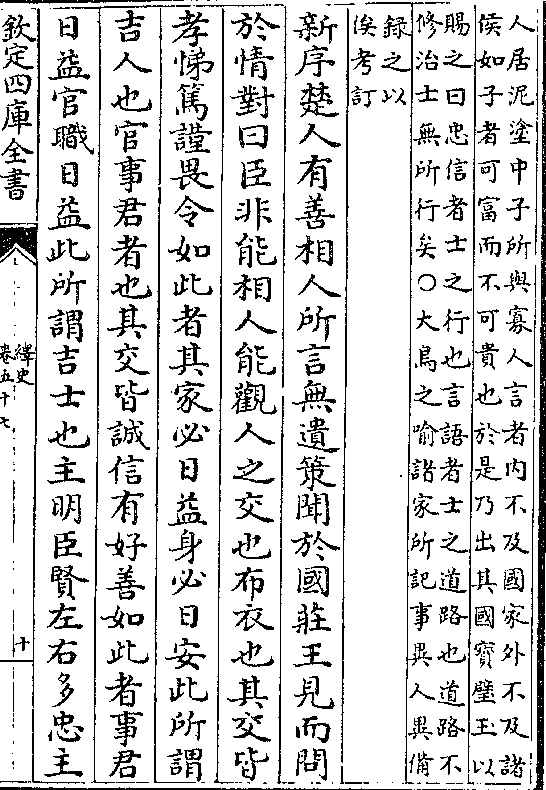 人居泥塗中子所與寡人言者內不及國家外不及諸
侯如子者可富而不可貴也於是乃出其國寶璧玉以
賜之曰忠信者士之行也言語者士之道路也道路不
修治士無所行矣○大鳥之喻諸家所記事異人異備
錄之以
俟考訂
新序楚人有善相人所言無遺策聞於國莊王見而問
於情對曰臣非能相人能觀人之交也布衣也其交皆
孝悌篤謹畏令如此者其家必日益身必日安此所謂
吉人也官事君者也其交皆誠信有好善如此者事君
日益官職日益此所謂吉士也主明臣賢左右多忠主
欽定四庫全書
繹史
卷五十七
十